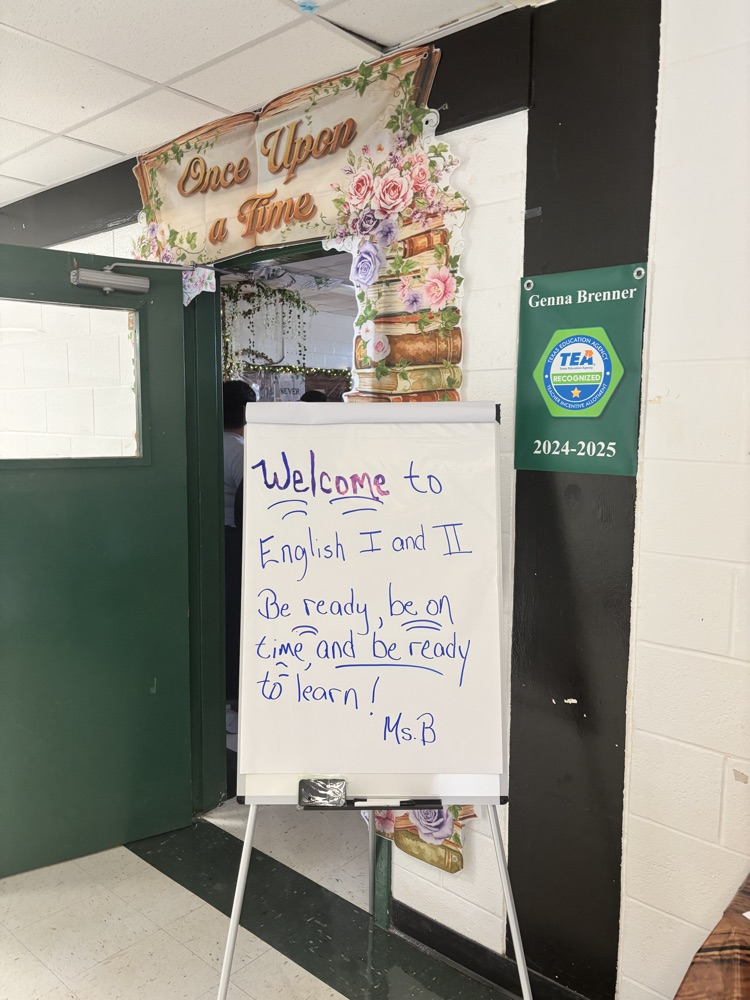 Once Upon
a Time
Genna Brenner
TEXAS EDUCATION AGENCY
TEA
Texas Education Agency
RECOGNIZED
TEACHER INCENTIVE ALLOTMENT
2024-2025
NEVER
Welcome to
English I and II
Be ready, be on
time, and be ready
to learn!
Ms. B